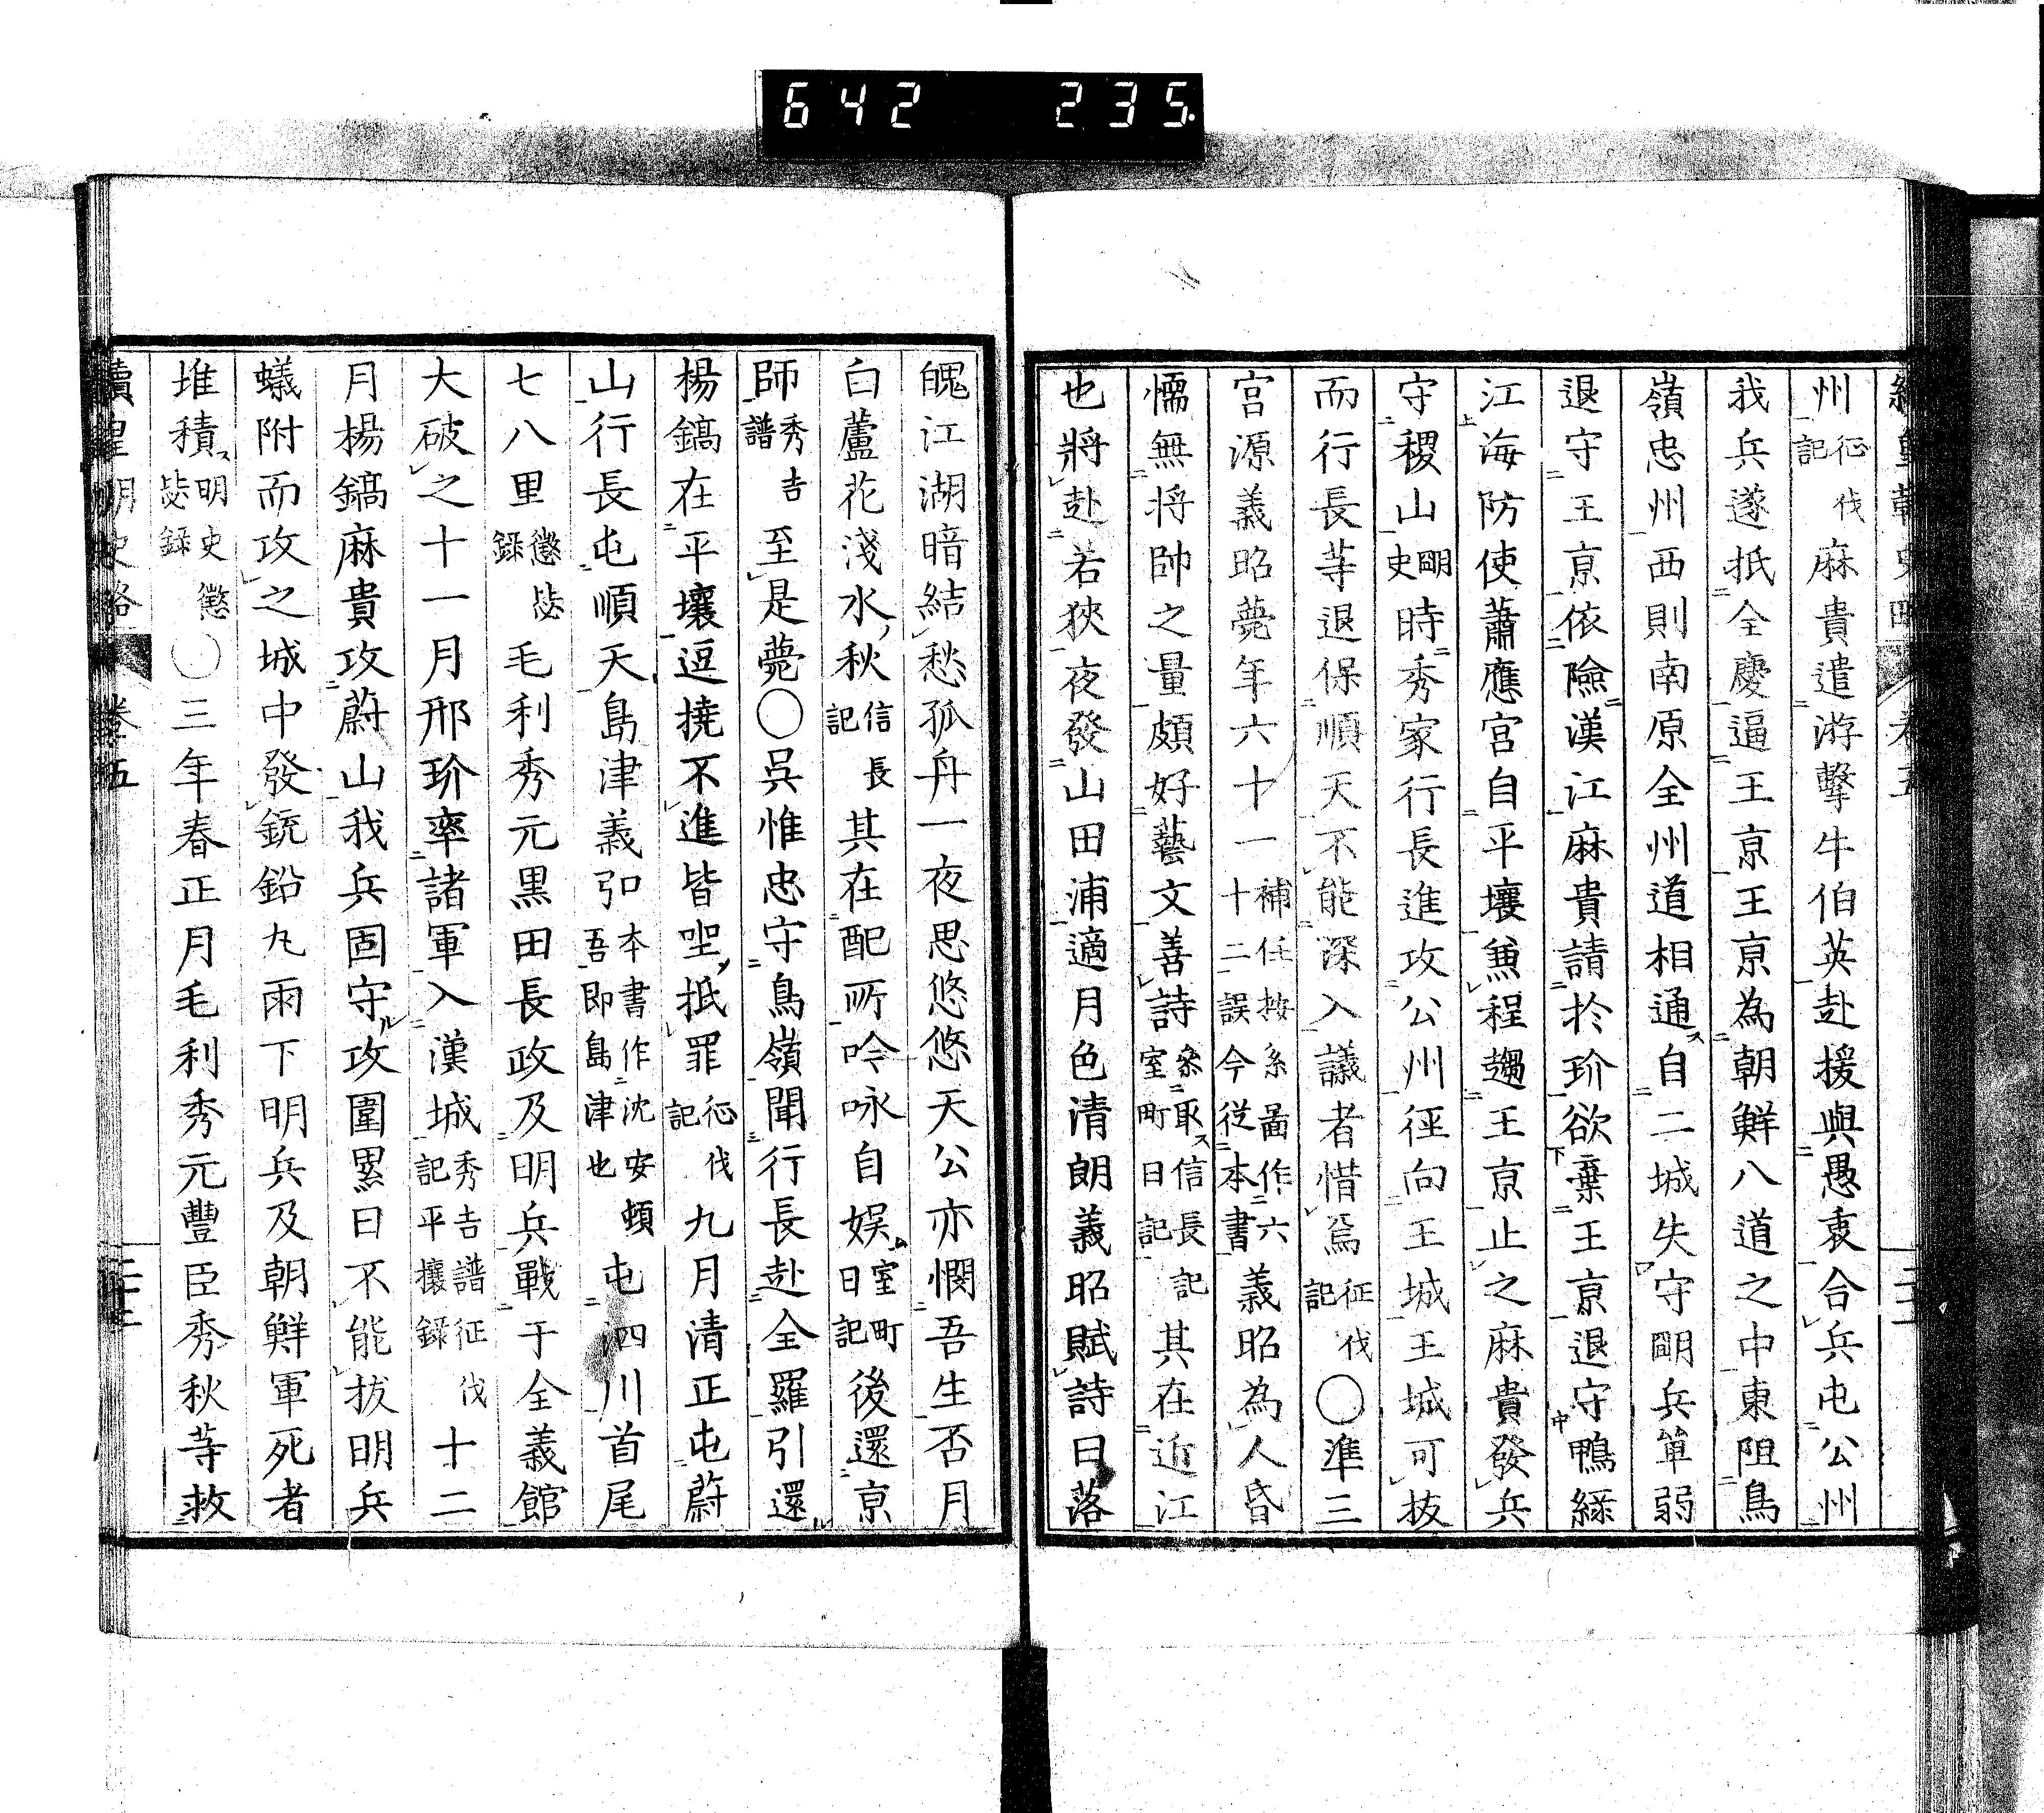 642 235.
州征伐記麻貴遣游擊牛伯英赴援與愚衷合兵屯公州
我兵遂抵全慶逼王京王京為朝鮮八道之中東阻鳥
嶺忠州西則南原全州道相通自二城失守朙兵單弱
退守王京依險漢江麻貴請於玠欲棄王京退守鴨綠
江海防使蕭應宮自平壤兼程趨王京止之麻貴發兵
守稷山朙史時秀家行長進攻公州徑向王城王城可拔
而行長等退保順天不能深入議者惜焉征伐記〇準三
宮源義昭薨年六十一補任按系圖作六十二誤今從本書義昭為人昏
懦無將帥之量頗好藝文善詩叅取信長記室町日記其在近江
也將赴若狹夜發山田浦適月色清朗義昭賦詩曰落
魄江湖暗結愁孤舟一夜思悠悠天公亦憫吾生否月
白蘆花淺水秋信長記其在配所吟咏自娛室町日記後還京
師秀吉譜至是薨〇吳惟忠守鳥嶺聞行長赴全羅引還
楊鎬在平壤逗撓不進皆坐抵罪征伐記九月清正屯蔚
山行長屯順天島津義弘本書作沈安頓吾即島津也屯泗川首尾
七八里懲毖錄毛利秀元黑田長政及明兵戰于全義館
大破之十一月邢玠率諸軍入漢城秀吉譜征伐記平攘錄十二
月楊鎬麻貴攻蔚山我兵固守攻圍累日不能拔明兵
蟻附而攻之城中發銃鉛丸雨下明兵及朝鮮軍死者
堆積明史懲毖錄〇三年春正月毛利秀元豐臣秀秋等救
續皇朝史略 卷五